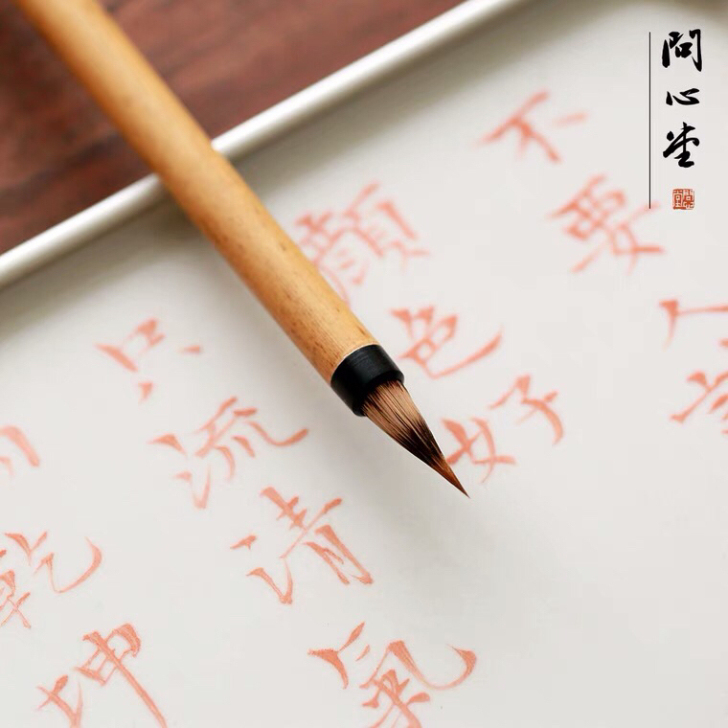 問心堂
不要人
顏色好
只流清氣
乾坤